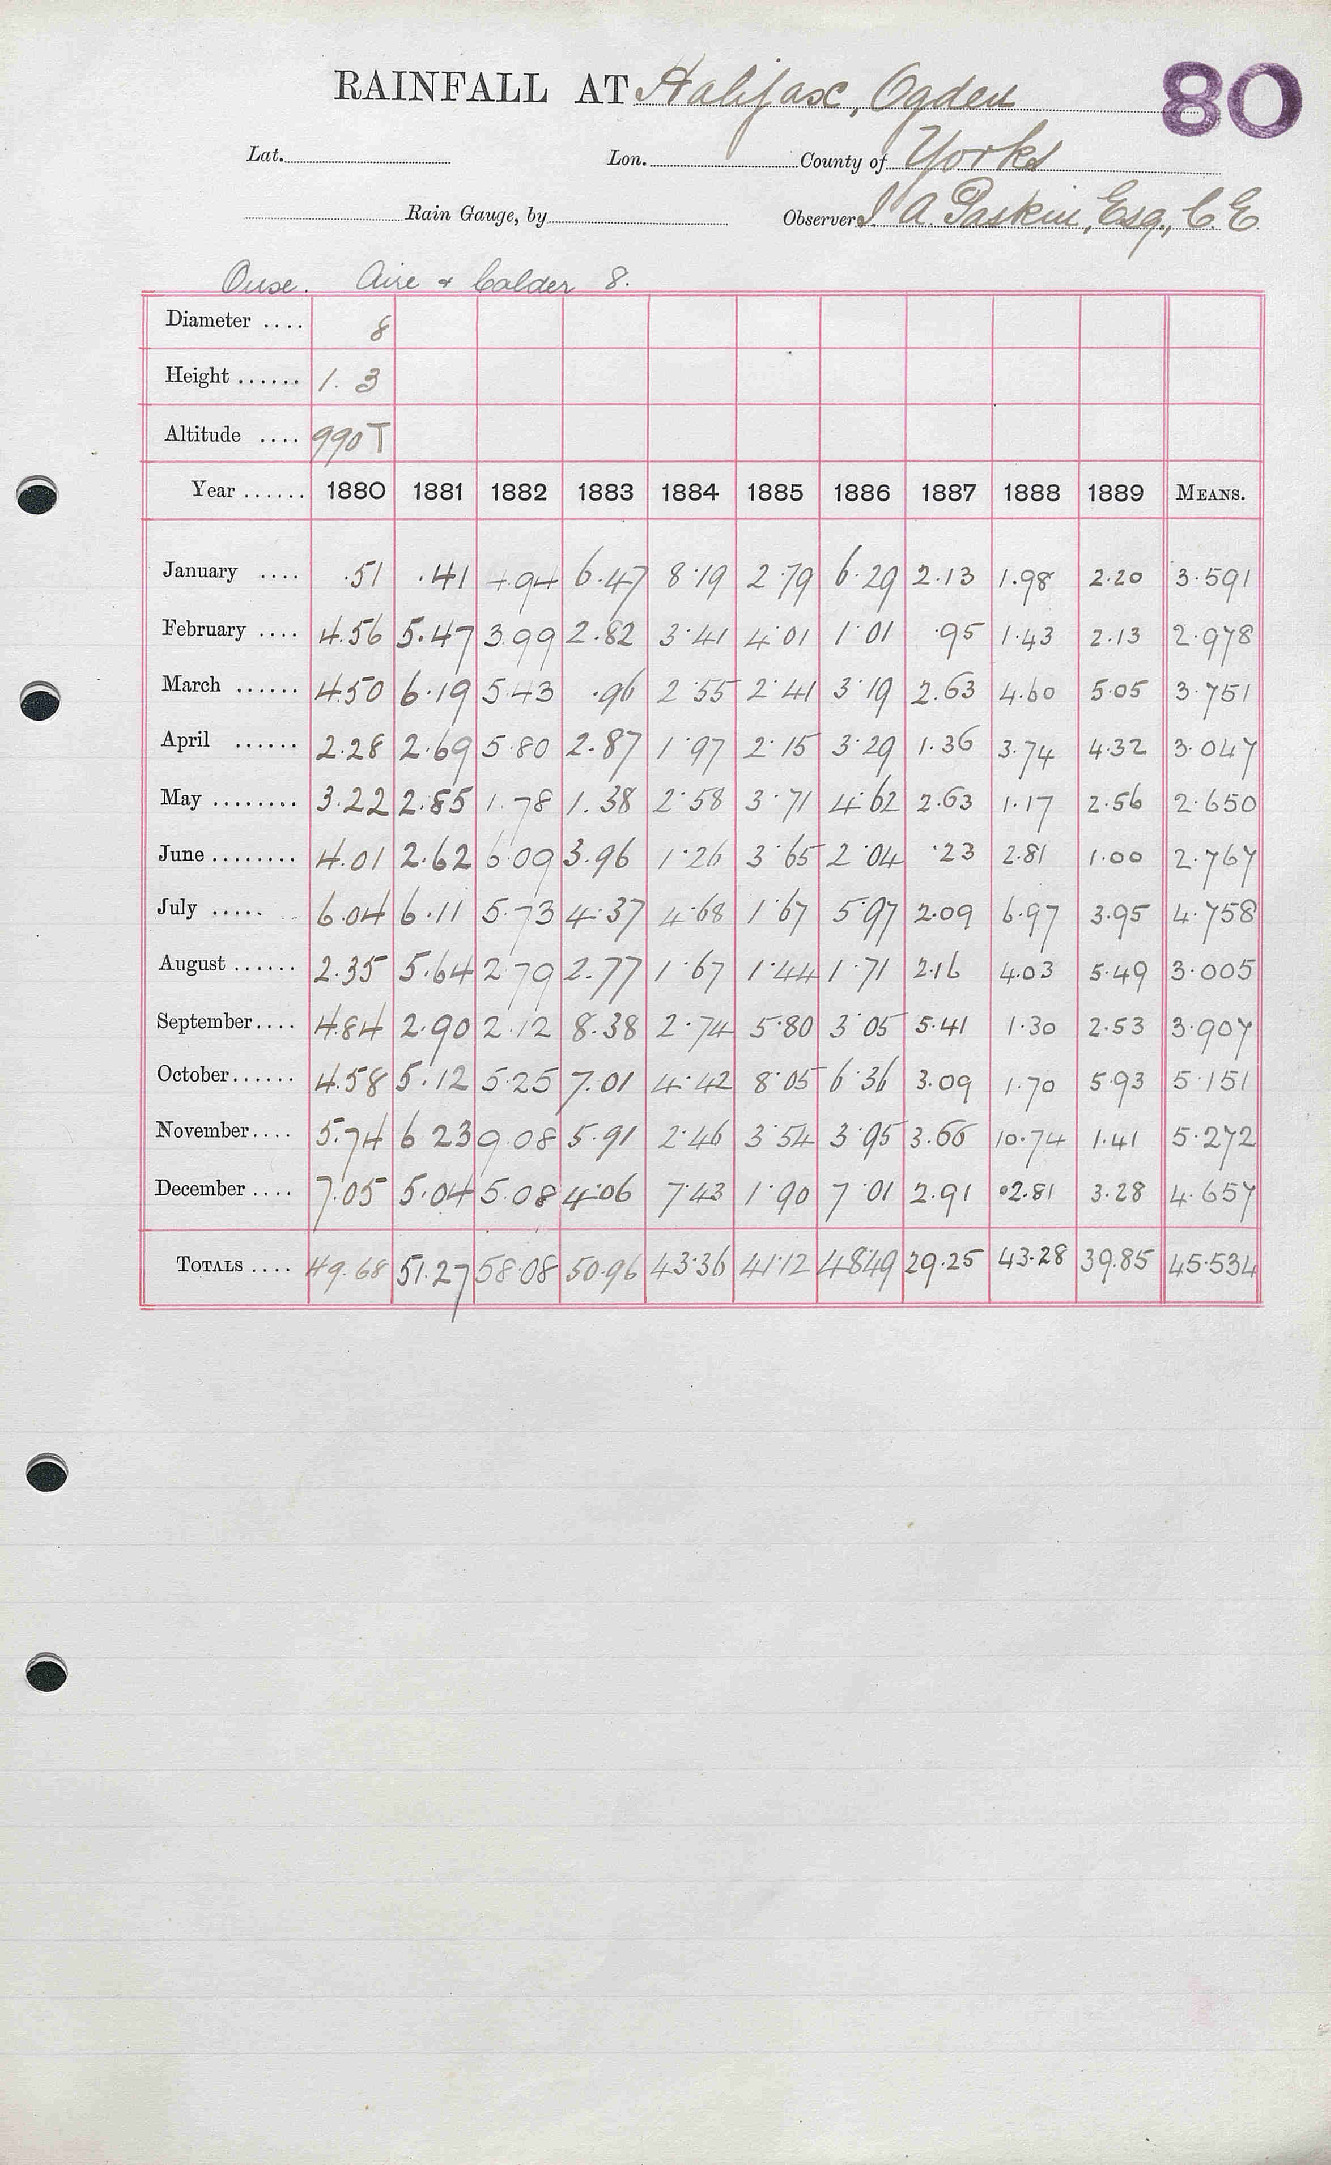 RAINFALL AT Halifax, Ogden 80
Lat. Lon. County of Yorks
Rain Gauge, by Observer J. A. Paskin, Esq., C.E.
Ouse. Aire & Calder 8.
Diameter .... 8
Height ...... 1. 3
Altitude .... 990 T
Year ...... 1880 1881 1882 1883 1884 1885 1886 1887 1888 1889 MEANS.
January .... .51 .41 4.94 6.47 8.19 2.79 6.29 2.13 1.98 2.20 3.591
February .... 4.56 5.47 3.99 2.82 3.41 4.01 1.01 .95 1.43 2.13 2.978
March ...... 4.50 6.19 5.43 .96 2.55 2.41 3.19 2.63 4.60 5.05 3.751
April ...... 2.28 2.69 5.80 2.87 1.97 2.15 3.29 1.36 3.74 4.32 3.047
May ........ 3.22 2.85 1.78 1.38 2.58 3.71 4.62 2.63 1.17 2.56 2.650
June ........ 4.01 2.62 6.09 3.96 1.26 3.65 2.04 .23 2.81 1.00 2.767
July ..... 6.04 6.11 5.73 4.37 4.68 1.67 5.97 2.09 6.97 3.95 4.758
August ...... 2.35 5.64 2.79 2.77 1.67 1.44 1.71 2.16 4.03 5.49 3.005
September.... 4.84 2.90 2.12 8.38 2.74 5.80 3.05 5.41 1.30 2.53 3.907
October...... 4.58 5.12 5.25 7.01 4.42 8.05 6.36 3.09 1.70 5.93 5.151
November.... 5.74 6.23 9.08 5.91 2.46 3.54 3.95 3.66 10.74 1.41 5.272
December .... 7.05 5.04 5.08 4.06 7.43 1.90 7.01 2.91 02.81 3.28 4.657
TOTALS .... 49.68 51.27 58.08 50.96 43.36 41.12 48.49 29.25 43.28 39.85 45.534